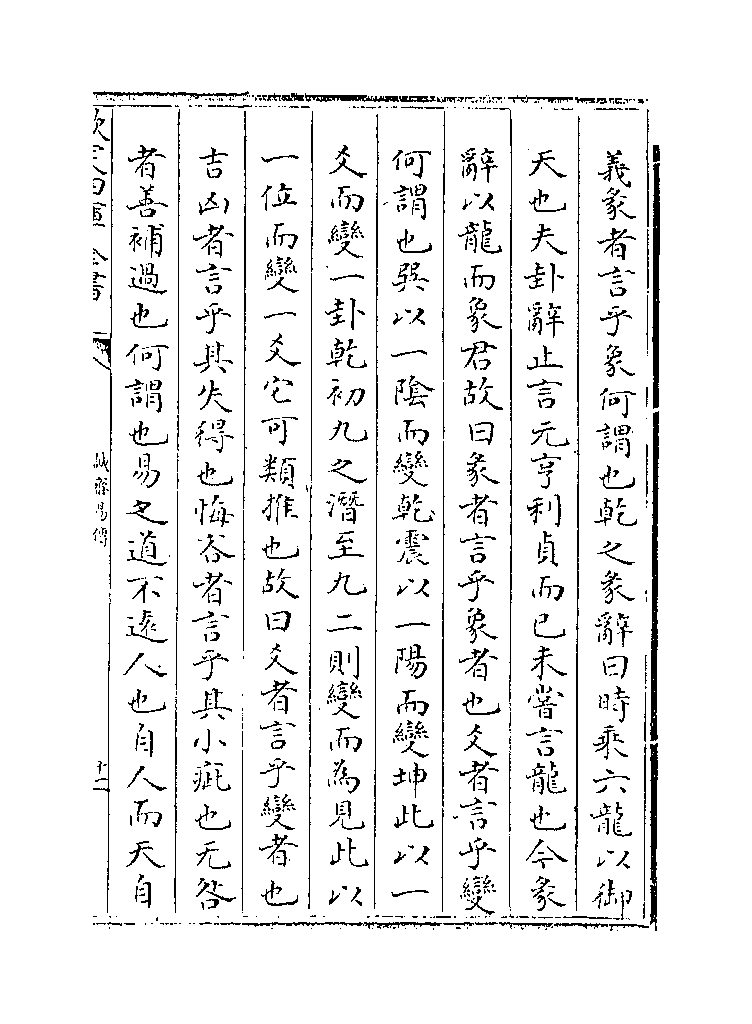 義彖者言乎象何謂也乾之彖辭曰時乘六龍以御
天也夫卦辭止言元亨利貞而已未嘗言龍也今彖
辭以龍而象君故曰彖者言乎象者也爻者言乎變
何謂也巽以一陰而變乾震以一陽而變坤此以一
爻而變一卦乾初九之潛至九二則變而為見此以
一位而變一爻它可類推也故曰爻者言乎變者也
吉凶者言乎其失得也悔吝者言乎其小疵也无咎
者善補過也何謂也易之道不逺人也自人而天自
欽定四庫全書
誠齋易傳
十一